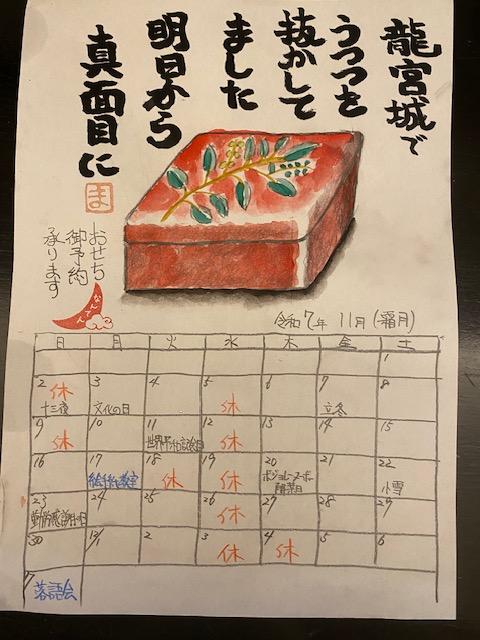 龍宮城で
うつつを
抜かして
ました
明日から
真面目に
ま
おせち
御予約
承ります
なんてん
令和7年 11月(霜月)
日 月 火 水 木 金 土
1
2 休 十三夜 3 文化の日 4 5 休 6 7 立冬 8
9 休 10 11 世界平和記念日 12 休 13 14 15
16 17 絵手紙教室 18 休 19 休 20 ボジョレーヌーボー解禁日 21 22 小雪
23 勤労感謝の日 24 25 26 休 27 28 29
30 12/1 2 3 休 4 休 5 6
7 落語会